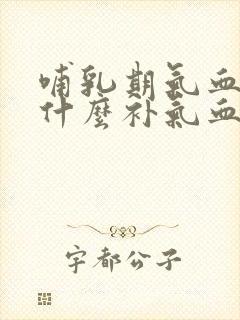 哺乳期气血
什麼补气血
宇都公子